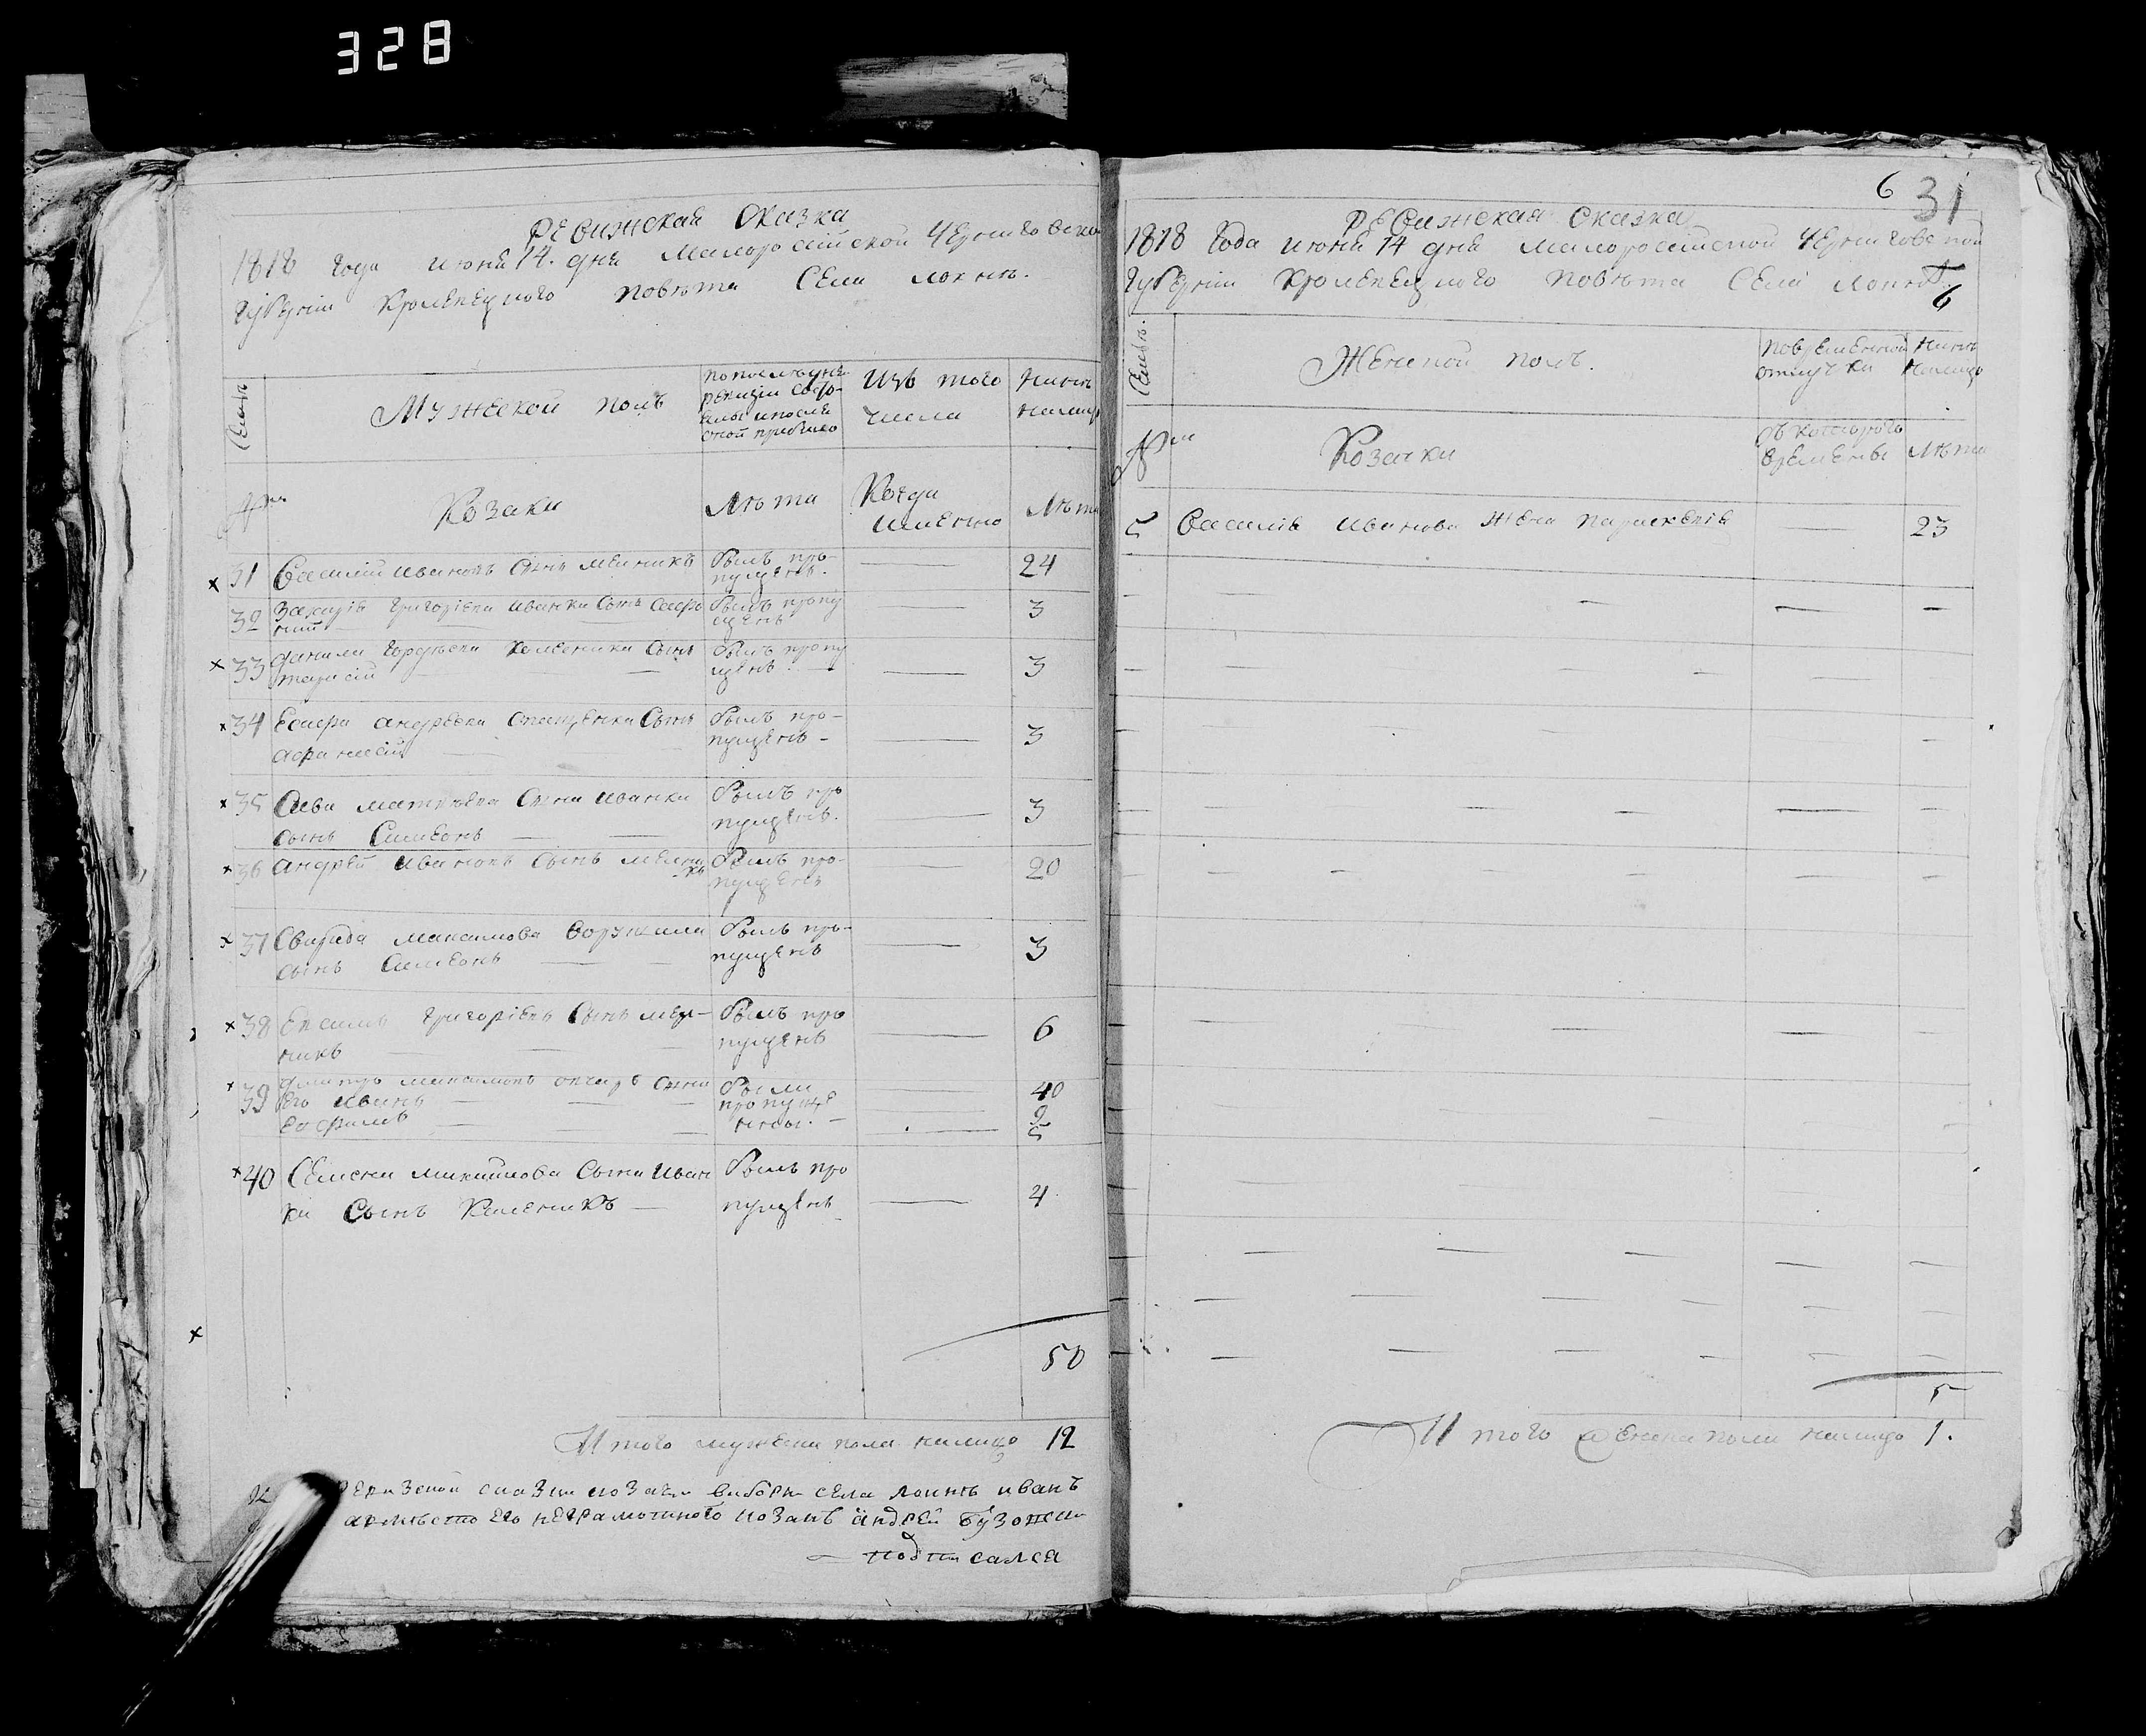 328
Ревижская Сказка
1818 Года июня 14. дня Малоросійской Черниговско
Губерніи Кролевецкого повѣта Села Локнѣ.
Семьи
Мужеской полъ
по послѣдней
ревизіи состо-
ялы и после
оной прибило
Изъ того
числа
Нинѣ
налицо
№
Козаки
Лѣта
Когда
именно
Лѣта
31 Василій Ивановъ Синъ Мелникъ
Былъ про-
пущенъ. 24
32 Захарія Григоріева Иванки Сынъ Софро
ній
Былъ пропу
щенъ 3
33 Данили Гордѣева Сынъ
тарасій
Былъ пропу
щенъ 3
34 Андреева Сынъ
афанасій
Былъ про-
пущенъ - 3
35 Сави Матвѣева Сина Иванки
сынъ Симеонъ
Былъ про
пущенъ. 3
36 Андрей Ивановъ Сынъ Мелни
къ
Былъ про-
пущенъ 20
37 Свирида Максимова
сынъ Симеонъ
Былъ про-
пущенъ 3
38 Григоріевъ Сынъ Мел-
никъ
Былъ про
пущенъ 6
39 Дмитръ Максимовъ Сини
его Иванъ
Были
пропуще
нны. 40
9
5
40 Семена Сина Иван
ки Сынъ Каленикъ
Былъ про
пущенъ 4
50
Итого мужеска пола налицо 12
ревизской сказки козакъ виборн села Локнѣ иванъ
его неграмотного козакъ андрей
подписался
6 31
Ревижская Сказка
1818 Года июня 14 дня Малоросійской Черниговской
Губерніи Кролевецкого Повѣта Села Локнѣ
6
Семьи.
Женской полъ.
Повременной
отлучки
Нинѣ
налицо
№
Козачки
съ котораго
времены
Лѣта
5 Василія Иванова Жена Параскевія 23
5
Итого женска поли налицо 1.